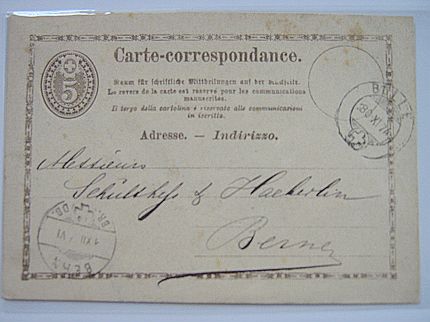 Carte-correspondance.
5
Raum für schriftliche Mittheilungen auf der Rückseite.
Le revers de la carte est réservé pour les communications
manuscrites.
Il tergo della cartolina è riservato alle communicazioni
in iscritto.
Adresse. — Indirizzo.
Messieurs
Schulthess & Haeberlin
Berne
BERN